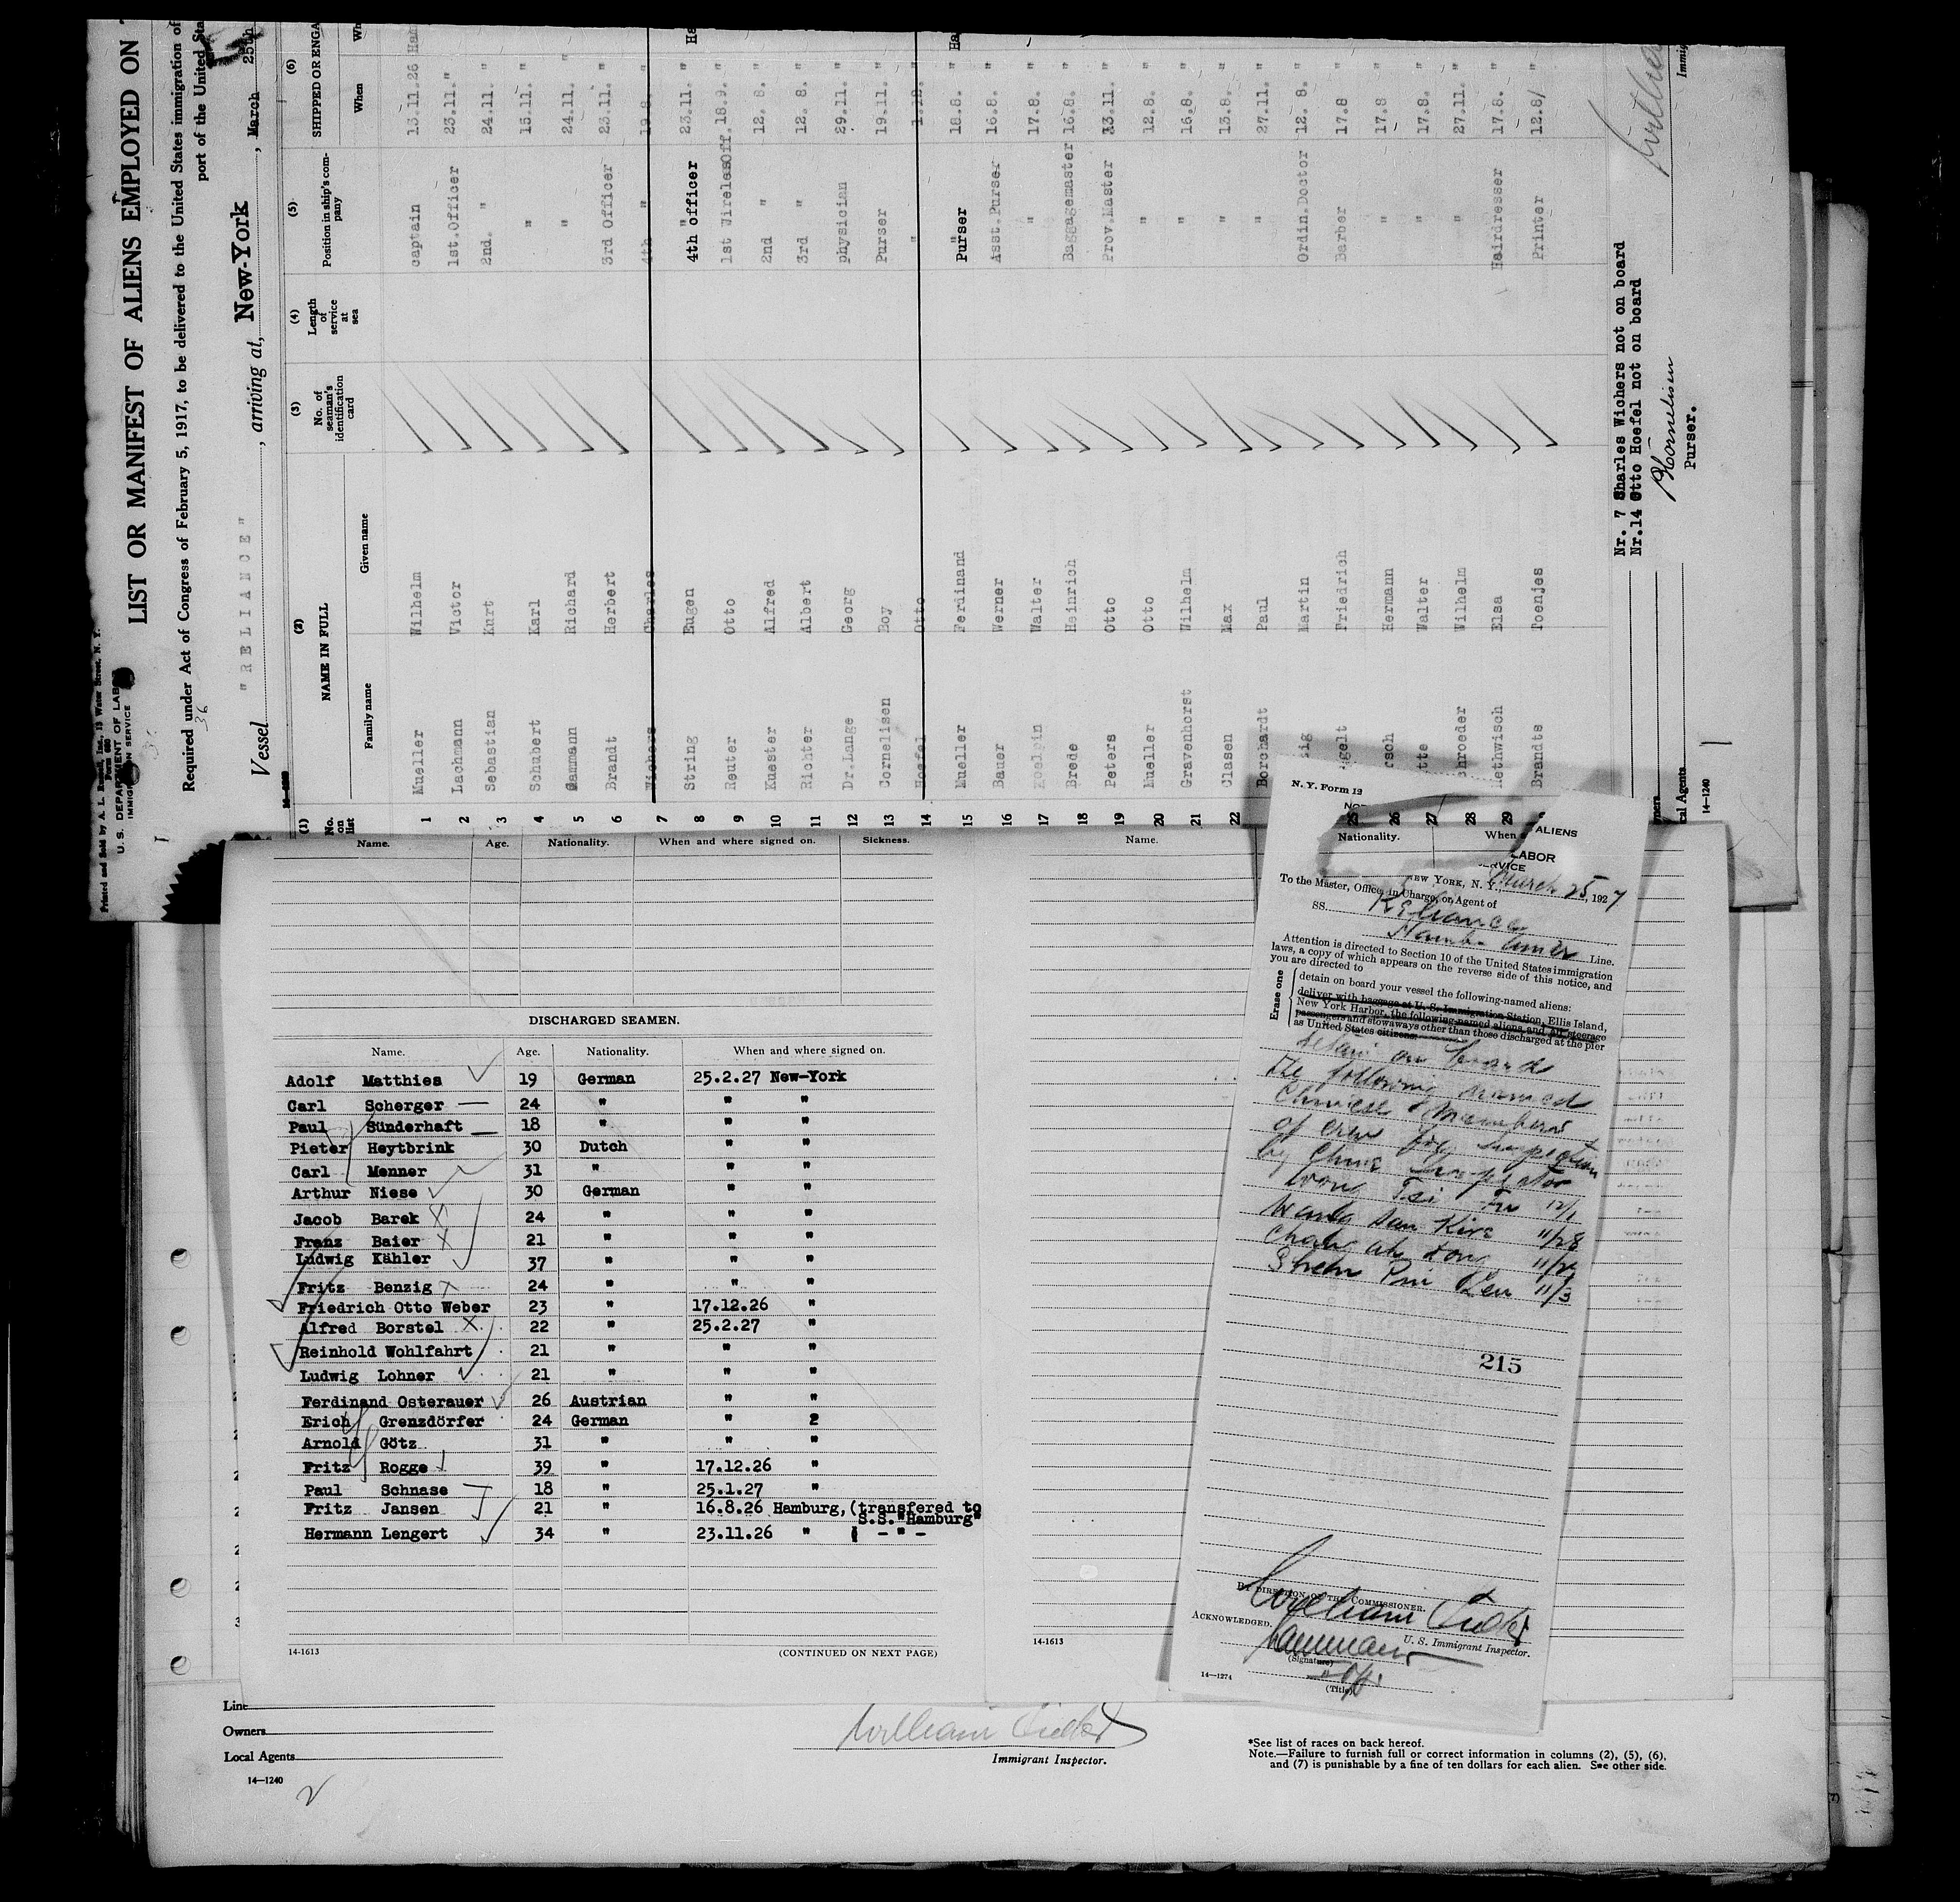 Printed and Sold by A. L. Russell, Inc., 12 Water Street, N. Y.
Form 680
U. S. DEPARTMENT OF LABOR
IMMIGRATION SERVICE
LIST OR MANIFEST OF ALIENS EMPLOYED ON
Required under Act of Congress of February 5, 1917, to be delivered to the United States immigration of
port of the United Sta
36
Vessel "RELIANCE", arriving at, New-York, March 25th
(1) (2) (3) (4) (5) (6)
No. on list NAME IN FULL No. of seaman's identification card Length of service at sea Position in ship's company SHIPPED OR ENGA
Family name Given name When Wh
1 Mueller Wilhelm captain 13.11.26 Ham
2 Lachmann Victor 1st.Officer 23.11. "
3 Sebastian Kurt 2nd. " 24.11. "
4 Schubert Karl " 15.11. "
5 Gaumann Richard " 24.11. "
6 Brandt Herbert 3rd Officer 23.11. "
7 Wichers Charles 4th " 19.8. "
8 String Eugen 4th officer 23.11. " Ha
9 Reuter Otto 1st WirelesOff. 18.9. "
10 Kuester Alfred 2nd " 12. 8. "
11 Richter Albert 3rd " 12. 8. "
12 Dr.Lange Georg physician 29.11. "
13 Cornelisen Boy Purser 19.11. "
14 Hoefel Otto " "
15 Mueller Ferdinand Purser 18.8. " Ha
16 Bauer Werner Asst.Purser 16.8. "
17 Koelpin Walter " 17.8. "
18 Brede Heinrich Baggagemaster 16.8. "
19 Peters Otto Prov.Master 23.11. "
20 Mueller Otto " 12.8. "
21 Gravenhorst Wilhelm " 16.8. "
22 Clasen Max " 13.8. "
Borchardt Paul " 27.11. "
tig Martin Ordin.Doctor 12. 8. "
25 gelt Friedrich Barber 17.8 "
26 rsch Hermann " 17.8 "
27 tte Walter " 17.8. "
28 chroeder Wilhelm " 27.11. "
29 Methwisch Elsa Hairdresser 17.8. "
Brandts Toenjes Printer 12.8/ "
Nr. 7 Charles Wichers not on board
Nr.14 Otto Hoefel not on board
Cornelisen
Purser.
Immig
wners
cal Agents
14—1240
Name. Age. Nationality. When and where signed on. Sickness.
DISCHARGED SEAMEN.
Name. Age. Nationality. When and where signed on.
Adolf Matthies 19 German 25.2.27 New-York
Carl Scherger 24 " " "
Paul Sünderhaft 18 " " "
Pieter Heytbrink 30 Dutch " "
Carl Menner 31 " " "
Arthur Niese 30 German " "
Jacob Barek 24 " " "
Franz Baier 21 " " "
Ludwig Kähler 37 " " "
Fritz Benzig 24 " " "
Friedrich Otto Weber 23 " 17.12.26 "
Alfred Borstel 22 " 25.2.27 "
Reinhold Wohlfahrt 21 " " "
Ludwig Lohner 21 " " "
Ferdinand Osterauer 26 Austrian " "
Erich Grenzdörfer 24 German " 2
Arnold Götz 31 " " "
Fritz Rogge 39 " 17.12.26 "
Paul Schnase 18 " 25.1.27 "
Fritz Jansen 21 " 16.8.26 Hamburg, (transfered to
S.S."Hamburg"
Hermann Lengert 34 " 23.11.26 " - " -
14-1613 (CONTINUED ON NEXT PAGE)
Name. Nationality. When
14-1613
N. Y. Form 13
ALIENS
LABOR
SERVICE
NEW YORK, N. Y., March 25, 1927
To the Master, Officer in Charge, or Agent of
SS. Reliance
Hamb. Amer Line.
Attention is directed to Section 10 of the United States immigration
laws, a copy of which appears on the reverse side of this notice, and
you are directed to
Erase one
detain on board your vessel the following-named aliens:
deliver with baggage at U. S. Immigration Station, Ellis Island,
New York Harbor, the following-named aliens and all steerage
passengers and stowaways other than those discharged at the pier
as United States citizens.
detain on board
the following named
Chinese members
of crew for inspection
by Chine Inspector
Wong Tsi Fu 12/1
Wang San Kire 11/28
Chang ah Dong
Shen Pin Ken 11/3
215
BY DIRECTION OF THE COMMISSIONER.
U. S. Immigrant Inspector.
ACKNOWLEDGED.
(Signature)
(Title)
14—1274
Line
Owners
Local Agents
14—1240
Immigrant Inspector.
*See list of races on back hereof.
Note.—Failure to furnish full or correct information in columns (2), (5), (6),
and (7) is punishable by a fine of ten dollars for each alien. See other side.